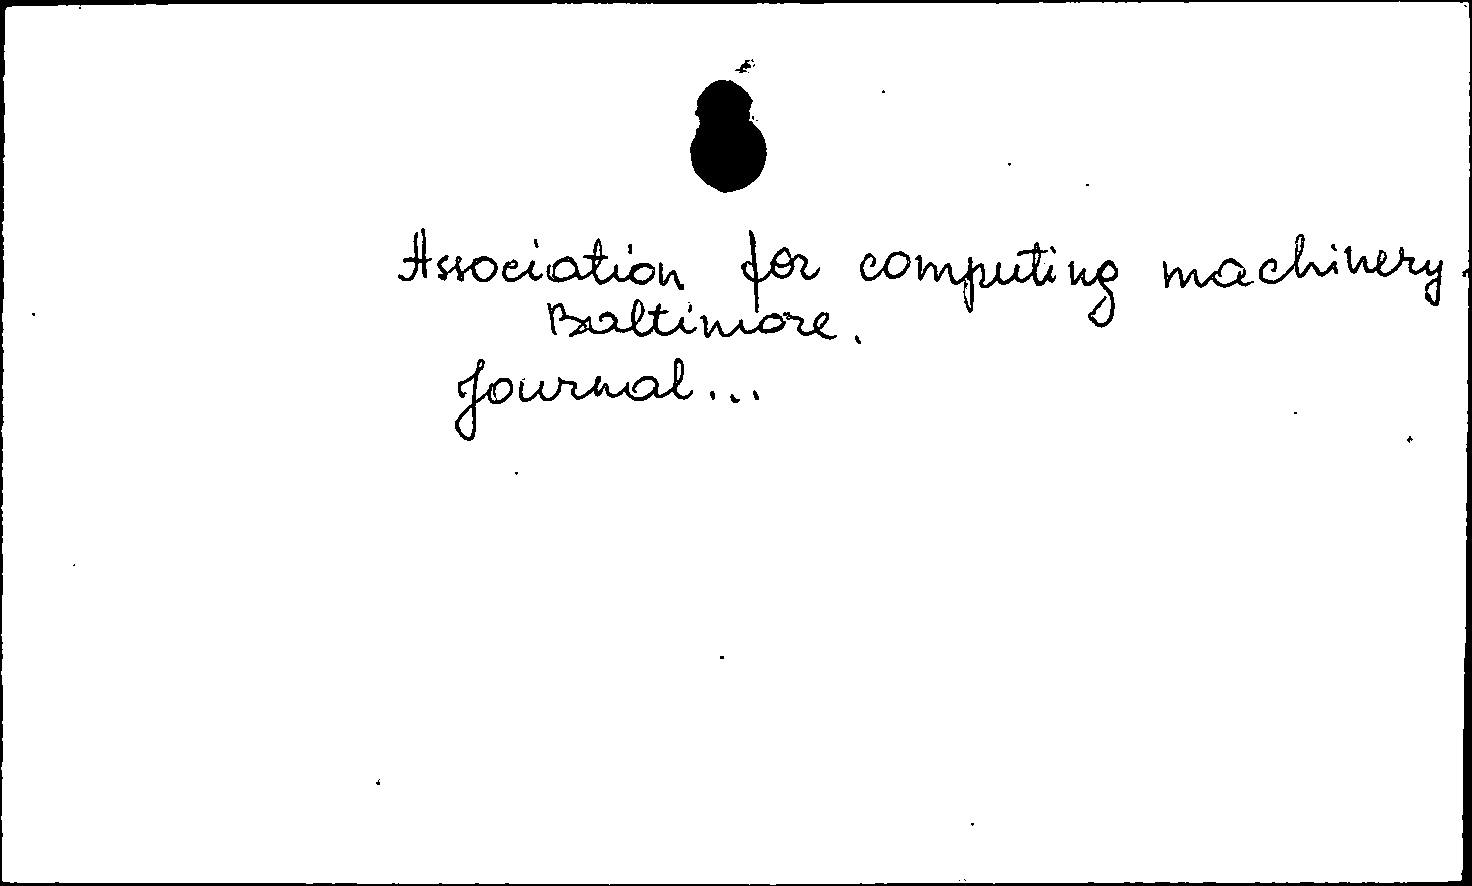 Association for computing machinery.
Baltimore.
Journal...